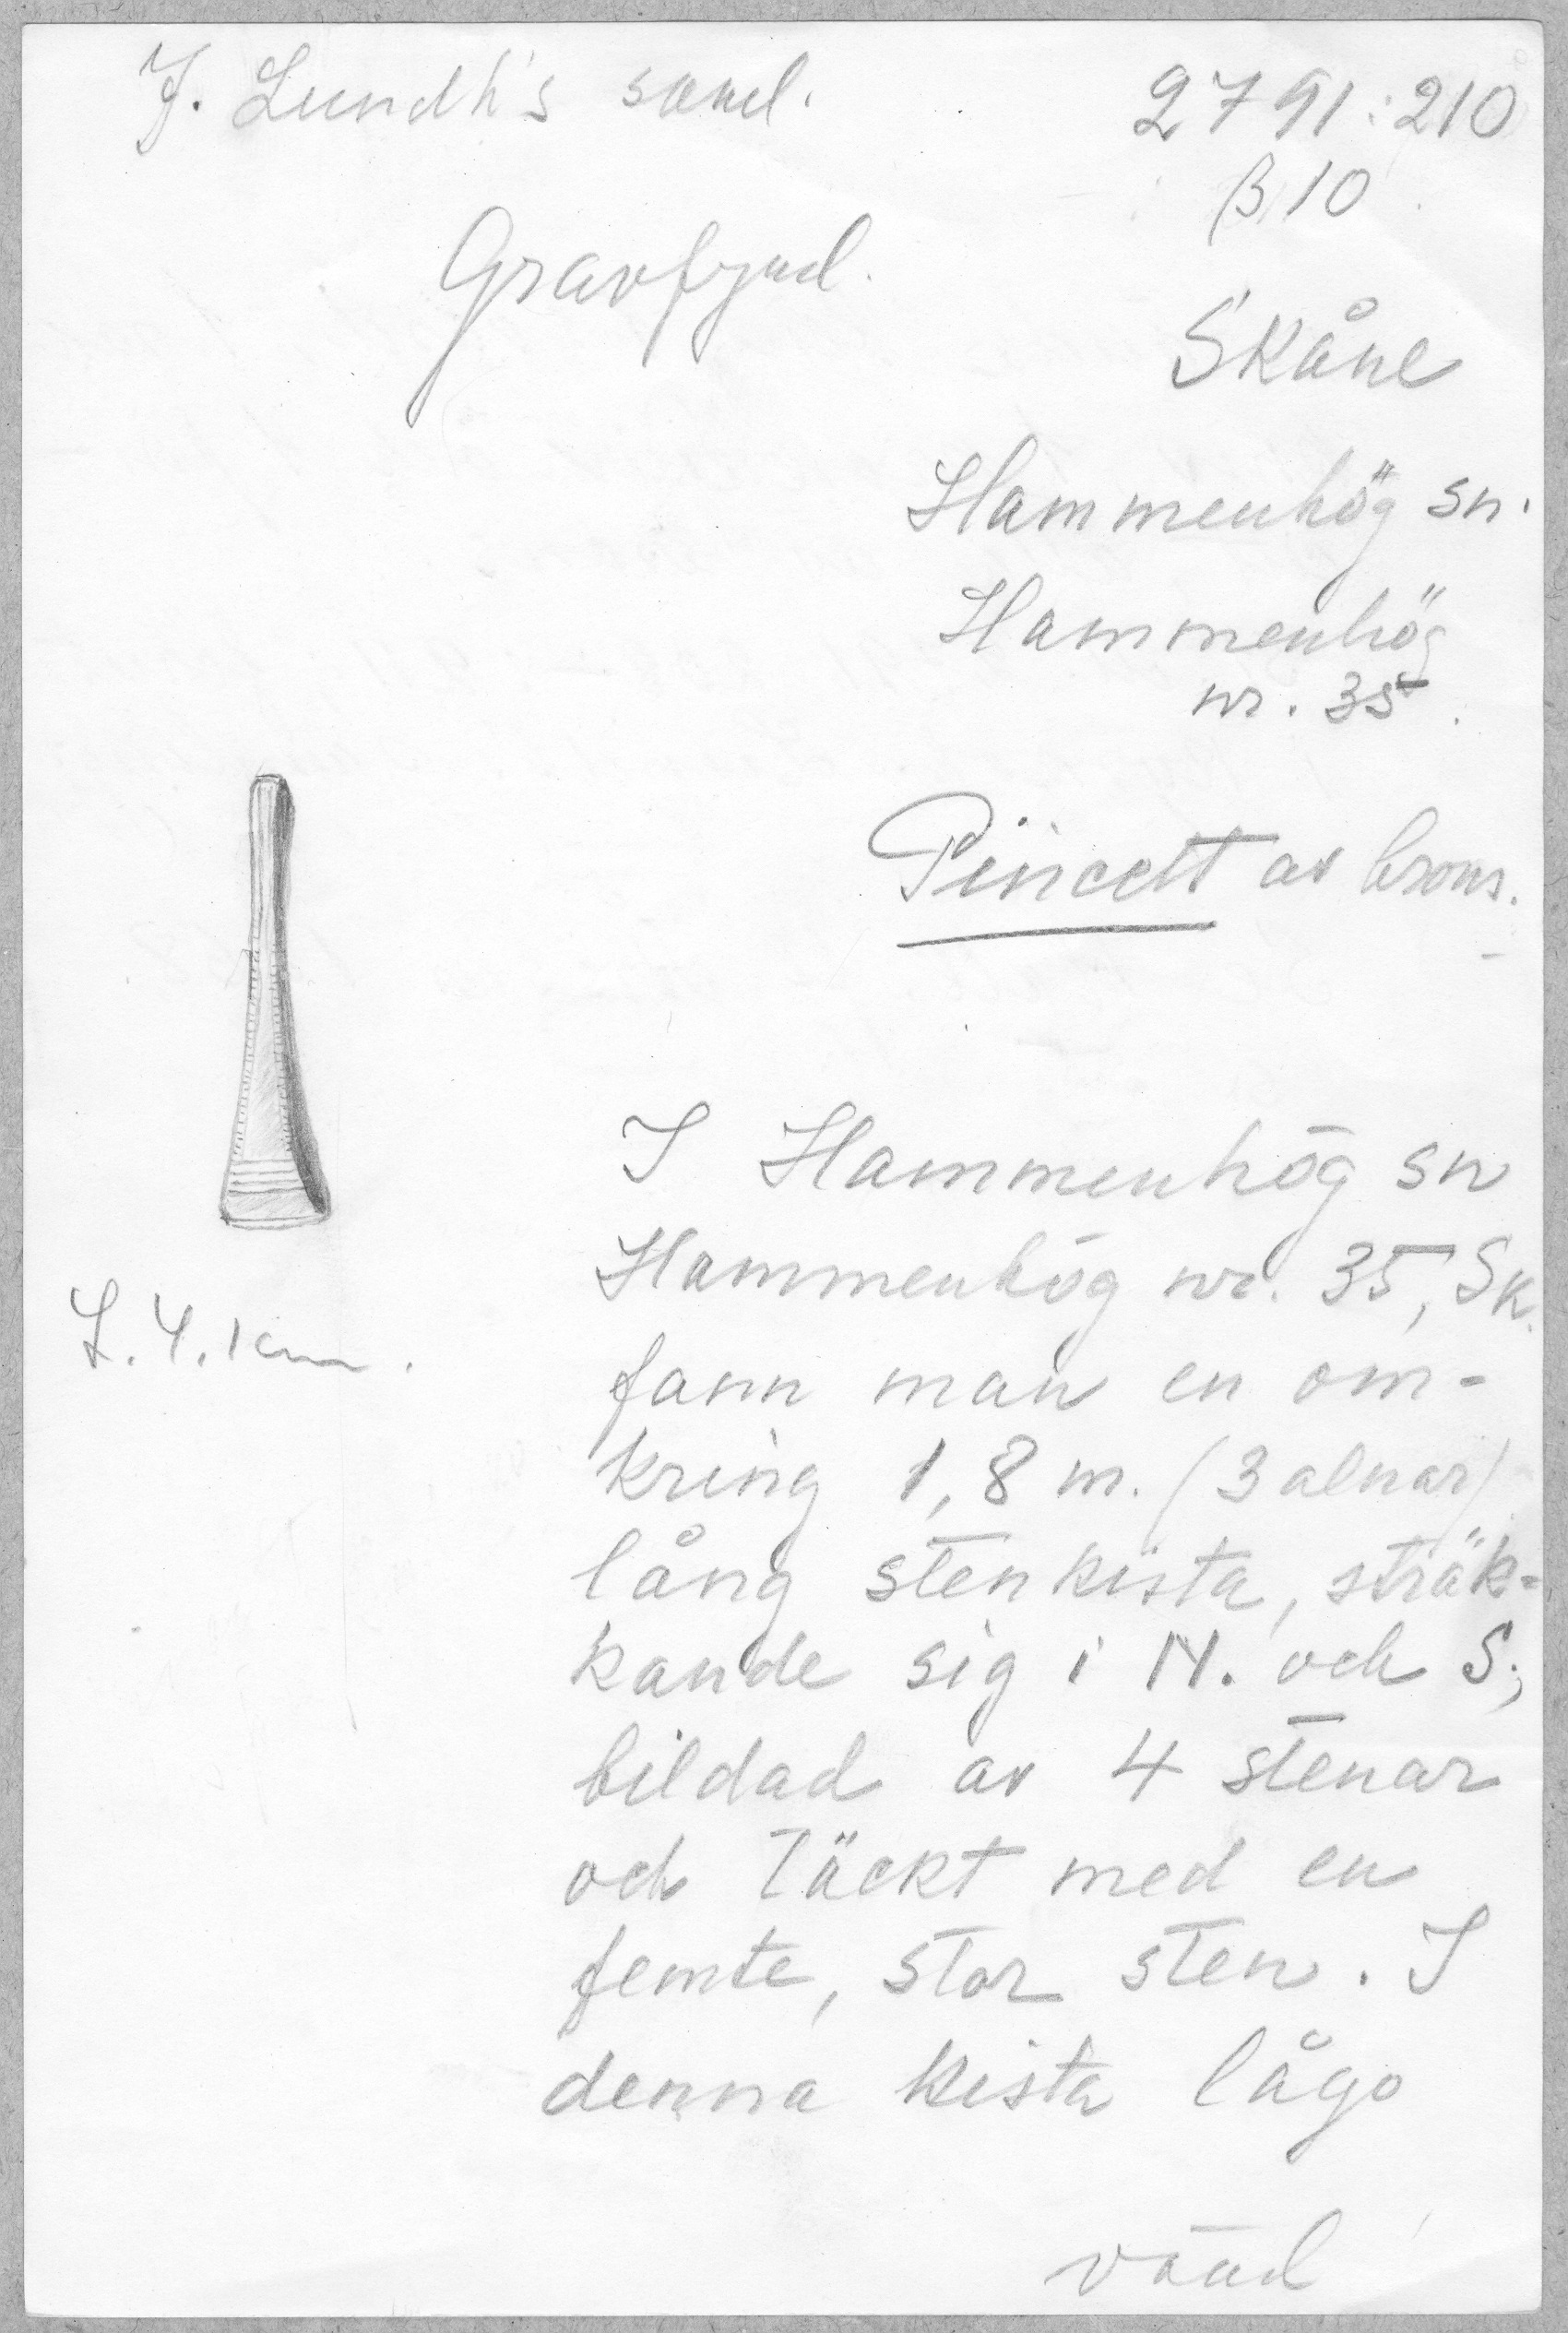 J. Lundh's saml.
2791:210
β 10
Gravfynd.
Skåne
Hammenhög sn.
Hammenhög
nr. 35.
Pincett av brons.
I Hammenhög sn
Hammenhög nr. 35, Sk.
L. 4.1 cm.
fann man en om-
kring 1,8 m. (3 alnar)
lång stenkista, sträk-
kande sig i N. och S.,
bildad av 4 stenar
och täckt med en
femte, stor sten. I
denna kista lågo
vänd